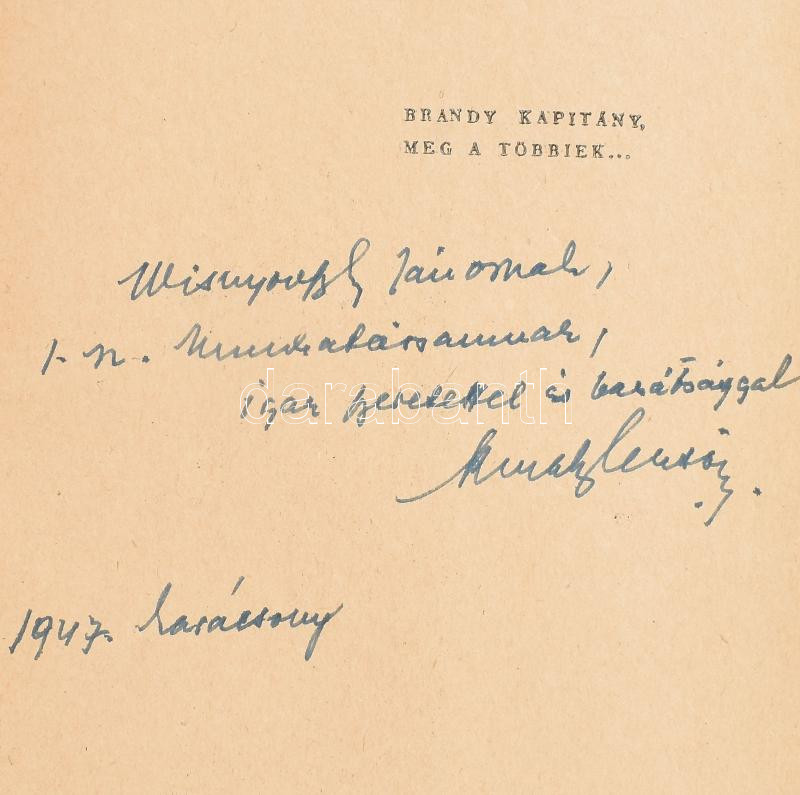 BRANDY KAPITÁNY,
MEG A TÖBBIEK...
Wisnyovszky Jánosnak,
k. n. Munkatársamnak,
igaz szeretettel és barátsággal
darabanth
1947. karácsony